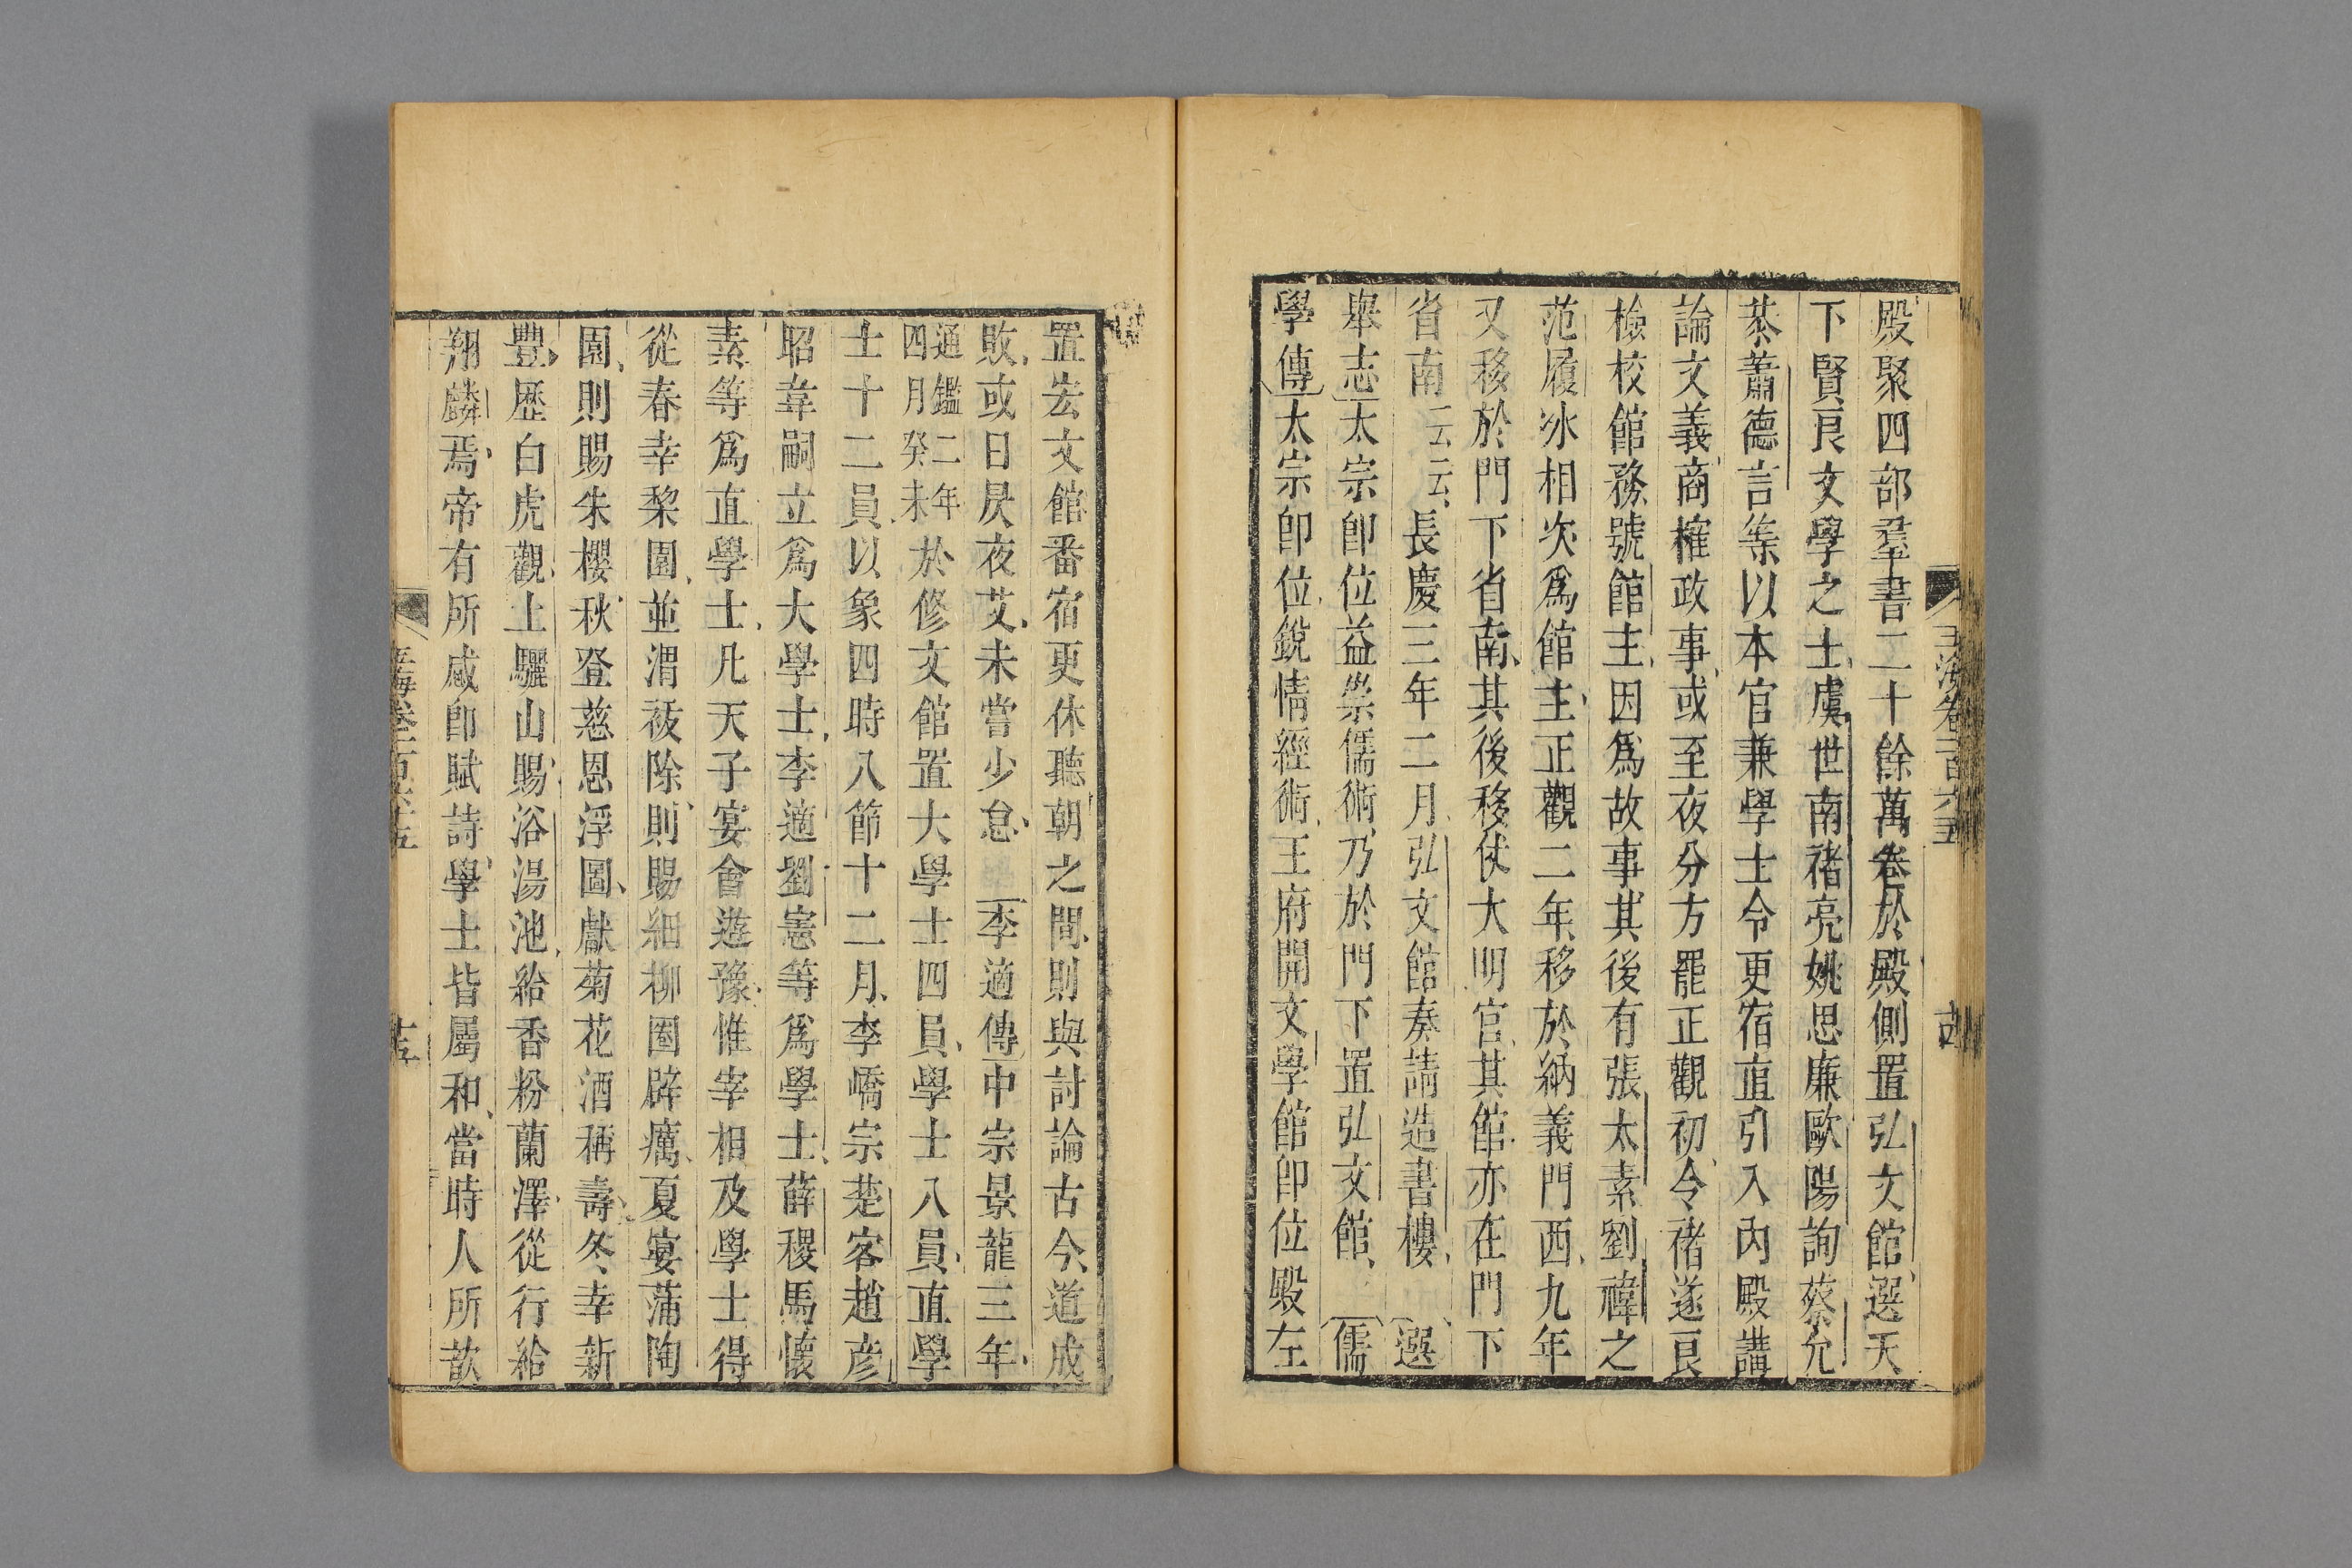 殿聚四部羣書二十餘萬卷於殿側置弘文館選天
下賢良文學之士虞世南禇亮姚思廉歐陽詢蔡允
恭蕭德言等以本官兼學士令更宿直引入內殿講
論文義商榷政事或至夜分方罷正觀初令禇遂良
檢校館務號館主因爲故事其後有張太素劉禕之
范履冰相次爲館主正觀二年移於納義門西九年
又移於門下省南其後移仗大明宮其館亦在門下
省南云云長慶三年二月弘文館奏請造書樓 選
舉志太宗即位益崇儒術乃於門下置弘文館 儒
學傳太宗即位銳情經術王府開文學館即位殿左
玉海卷一百六十五 十四
置宏文館番宿更休聽朝之間則與討論古今道成
敗或日昃夜艾未嘗少怠 李適傳中宗景龍三年
通鑑二年四月癸未於修文館置大學士四員學士八員直學
士十二員以象四時八節十二月李嶠宗楚客趙彦
昭韋嗣立爲大學士李適劉憲等爲學士薛稷馬懷
素等爲直學士凡天子宴會遊豫惟宰相及學士得
從春幸棃園並渭祓除則賜細柳圈辟癘夏宴蒲陶
園則賜朱櫻秋登慈恩浮圖獻菊花酒稱壽冬幸新
豐歷白虎觀上驪山賜浴湯池給香粉蘭澤從行給
翔麟焉帝有所感即賦詩學士皆屬和當時人所歆
玉海卷一百六十五 十五